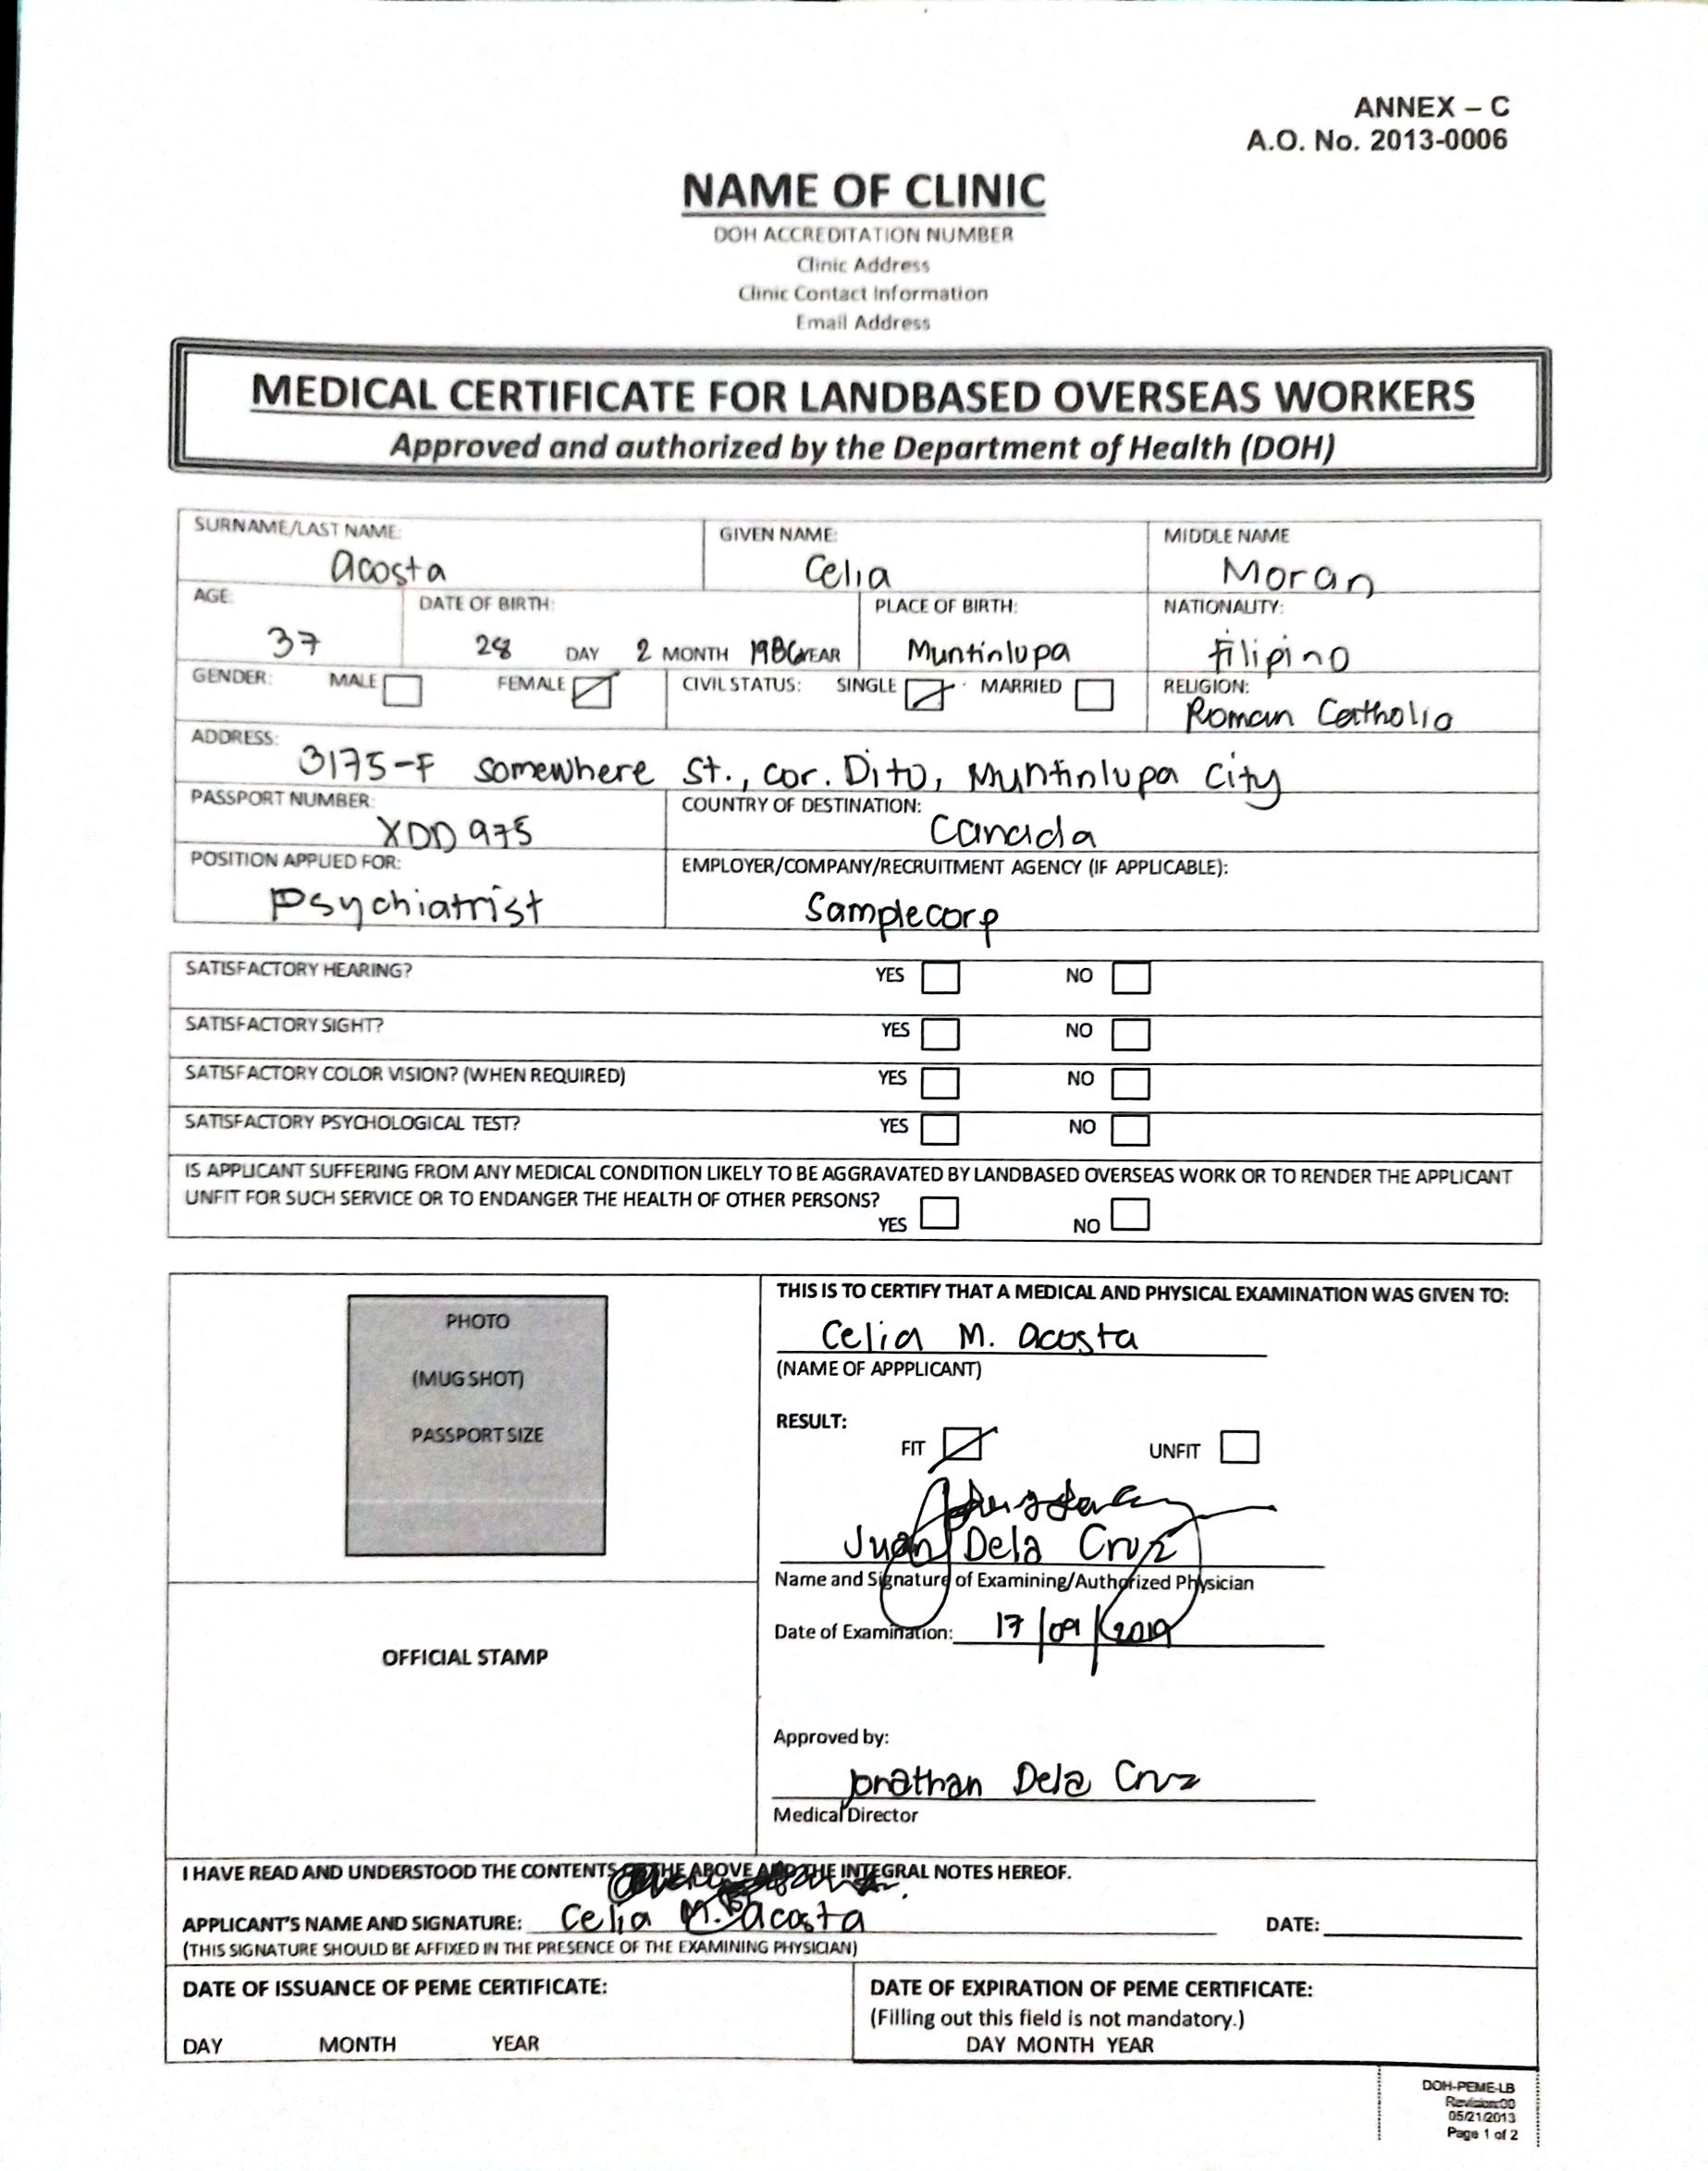 ANNEX – C
A.O. No. 2013-0006
NAME OF CLINIC
DOH ACCREDITATION NUMBER
Clinic Address
Clinic Contact Information
Email Address
MEDICAL CERTIFICATE FOR LANDBASED OVERSEAS WORKERS
Approved and authorized by the Department of Health (DOH)
SURNAME/LAST NAME: GIVEN NAME: MIDDLE NAME
Acosta Celia Moran
AGE: DATE OF BIRTH: PLACE OF BIRTH: NATIONALITY:
37 28 DAY 2 MONTH 1986 YEAR Muntinlupa Filipino
GENDER: MALE FEMALE CIVIL STATUS: SINGLE MARRIED RELIGION:
Roman Catholic
ADDRESS: 3175-F Somewhere St., cor. Dito, Muntinlupa City
PASSPORT NUMBER: COUNTRY OF DESTINATION:
XDD975 Canada
POSITION APPLIED FOR: EMPLOYER/COMPANY/RECRUITMENT AGENCY (IF APPLICABLE):
Psychiatrist Samplecorp
SATISFACTORY HEARING? YES NO
SATISFACTORY SIGHT? YES NO
SATISFACTORY COLOR VISION? (WHEN REQUIRED) YES NO
SATISFACTORY PSYCHOLOGICAL TEST? YES NO
IS APPLICANT SUFFERING FROM ANY MEDICAL CONDITION LIKELY TO BE AGGRAVATED BY LANDBASED OVERSEAS WORK OR TO RENDER THE APPLICANT
UNFIT FOR SUCH SERVICE OR TO ENDANGER THE HEALTH OF OTHER PERSONS?
YES NO
PHOTO
(MUG SHOT)
PASSPORT SIZE
OFFICIAL STAMP
THIS IS TO CERTIFY THAT A MEDICAL AND PHYSICAL EXAMINATION WAS GIVEN TO:
Celia M. Acosta
(NAME OF APPPLICANT)
RESULT:
FIT UNFIT
Juan Dela Cruz
Name and Signature of Examining/Authorized Physician
Date of Examination: 17/09/2019
Approved by:
Jonathan Dela Cruz
Medical Director
I HAVE READ AND UNDERSTOOD THE CONTENTS OF THE ABOVE AND THE INTEGRAL NOTES HEREOF.
APPLICANT'S NAME AND SIGNATURE: Celia M. Acosta DATE:
(THIS SIGNATURE SHOULD BE AFFIXED IN THE PRESENCE OF THE EXAMINING PHYSICIAN)
DATE OF ISSUANCE OF PEME CERTIFICATE:
DAY MONTH YEAR
DATE OF EXPIRATION OF PEME CERTIFICATE:
(Filling out this field is not mandatory.)
DAY MONTH YEAR
DOH-PEME-LB
Revision:00
05/21/2013
Page 1 of 2